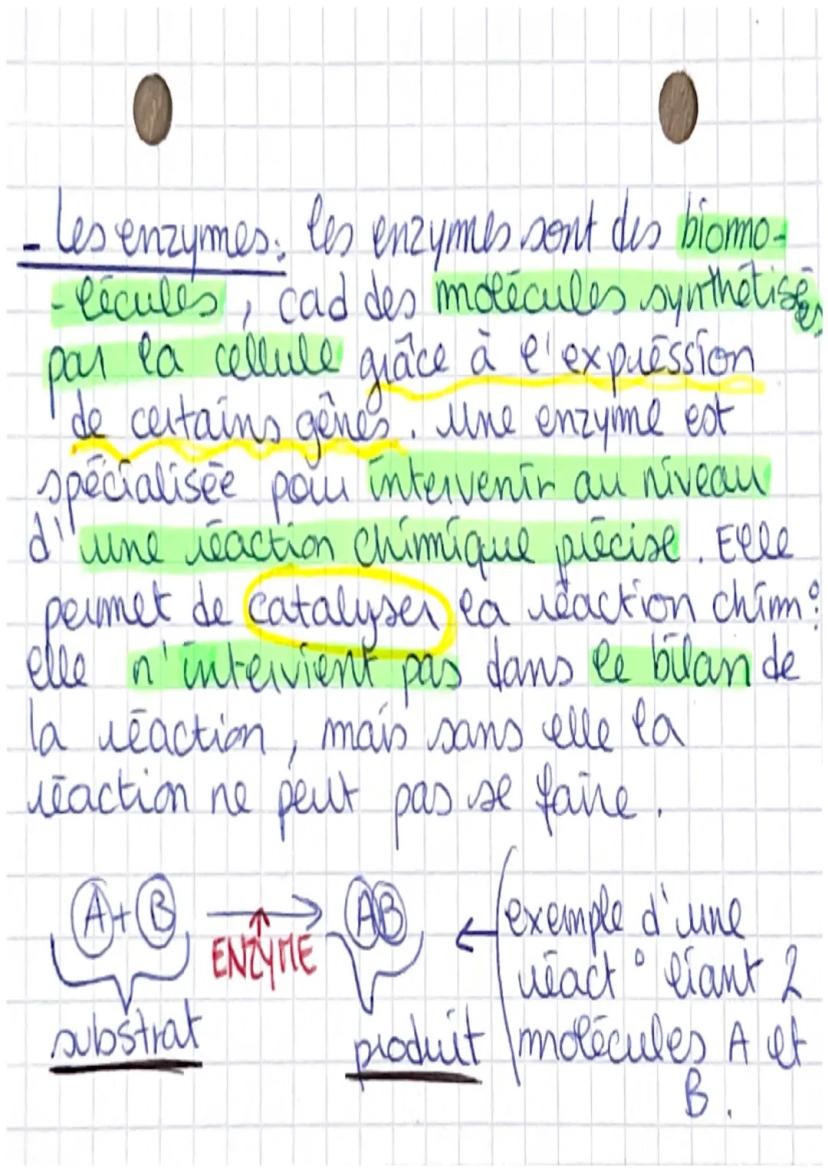 - Les enzymes: les enzymes sont des biomo-
-lécules, cad des molécules synthétisées
par la cellule grâce à l'expréssion
de certains gênes. Une enzyme est
spécialisée pour intervenir au niveau
d'une réaction chimique précise. Elle
permet de catalyser la réaction chim°
elle n'intervient pas dans le bilan de
la réaction, mais sans elle la
réaction ne peut pas se faire.
A + B → AB ← exemple d'une
ENZYME réact° liant 2
substrat produit molécules A et
B.